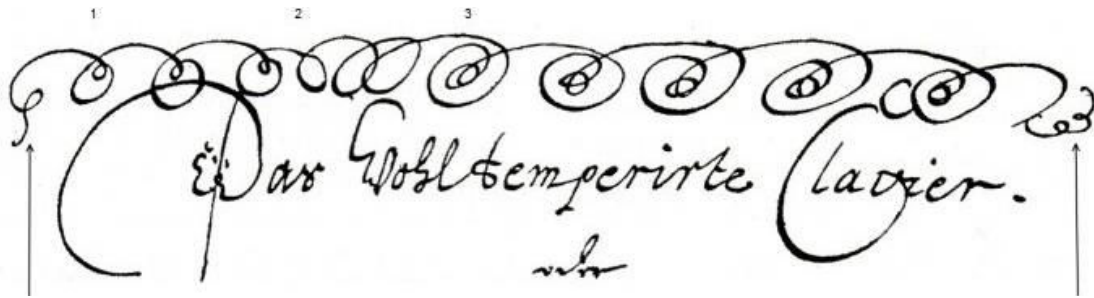 1 2 3
Das Wohltemperirte Clavier.
oder